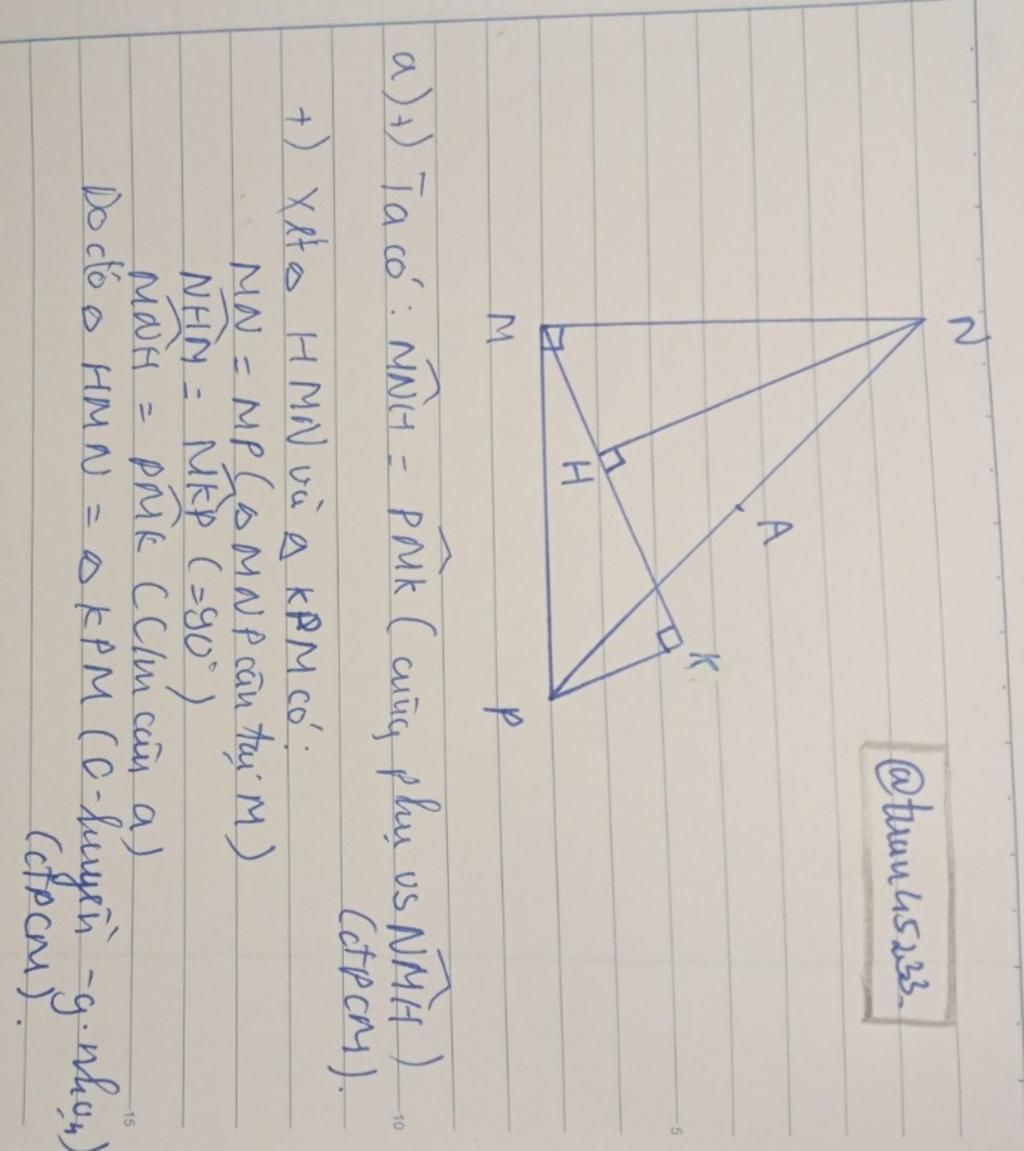 @tuan45233
N
A
K
H
M
P
5
a) +) Ta có: MNH = PMK (cùng phụ vs NMH)
10
(đPCM).
+) Xét Δ HMN và Δ KPM có:
MN = MP (Δ MNP cân tại M)
NHM = MKP (=90°)
MNH = PMK (C/m câu a)
15
Do đó Δ HMN = Δ KPM (C-huyền - g.nhọn)
(đPCM).